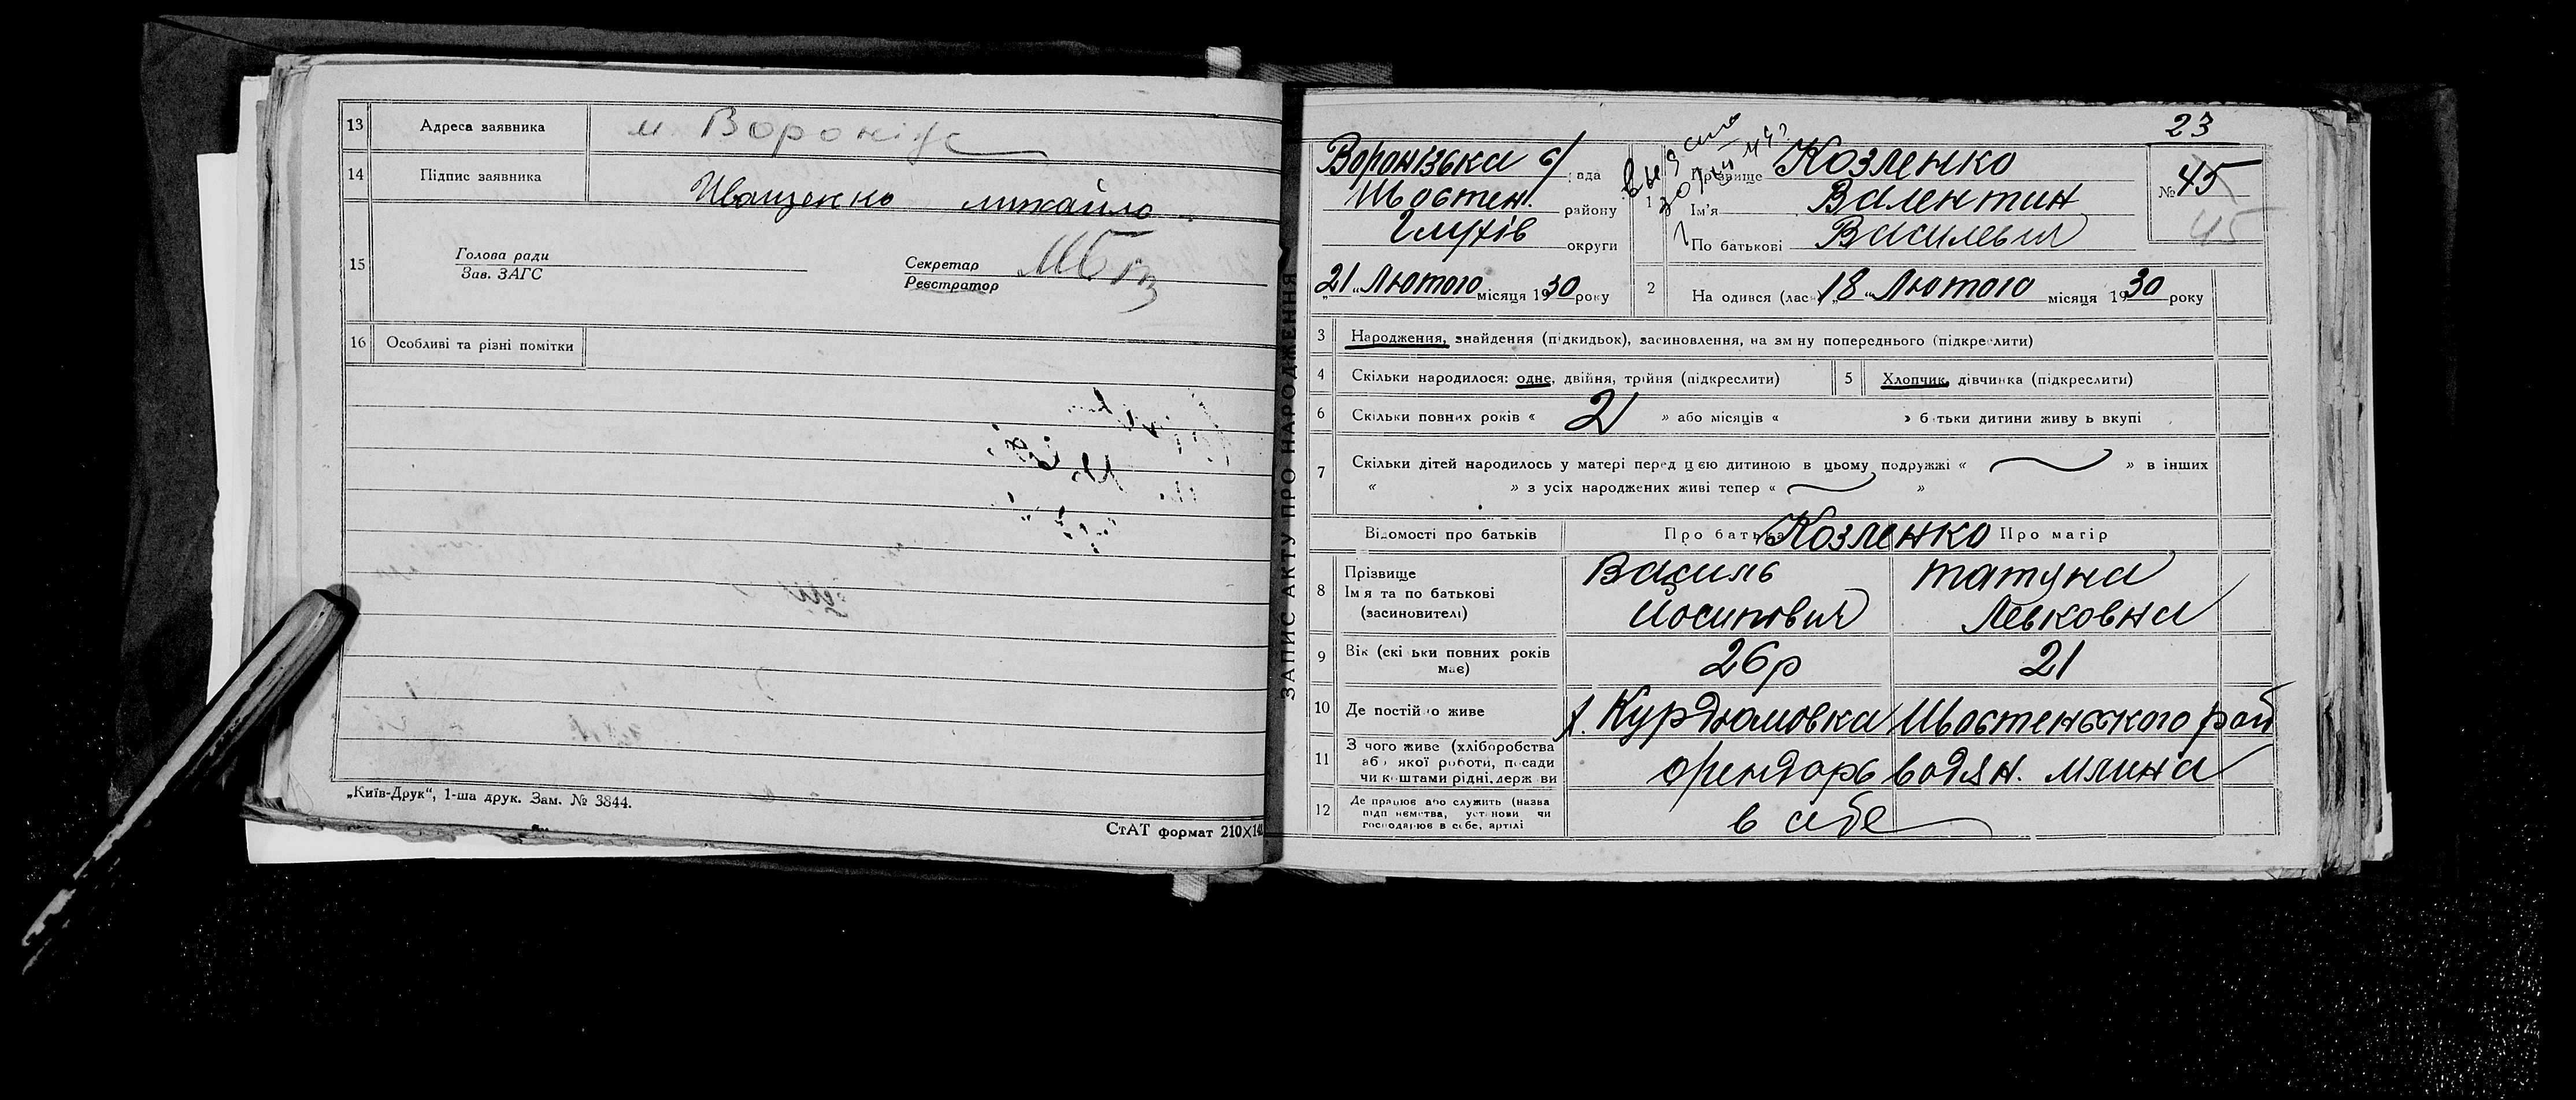 13 Адреса заявника м Вороніж
14 Підпис заявника Иващенко михайло
15 Голова ради Зав. ЗАГС Секретар Реєстратор
16 Особливі та різні помітки
„Київ-Друк“, 1-ша друк. Зам. № 3844.
СтАТ формат 210×14
ЗАПИС АКТУ ПРО НАРОДЖЕННЯ
23
Воронізька с/ рада
Шостен. району
Глухів округи
„21„ Лютого місяця 1930 року
1 Прізвище Козленко
Ім'я Валентин
По батькові Васильевич
№ 45
45
2 На одився (лась) „18„ Лютого місяця 1930 року
3 Народження, знайдення (підкидьок), засиновлення, на зм ну попереднього (підкреслити)
4 Скільки народилося: одне, двійня, трійня (підкреслити)
5 Хлопчик, дівчинка (підкреслити)
6 Скільки повних років « 2 » або місяців « » батьки дитини живу ь вкупі
7 Скільки дітей народилось у матері перед цією дитиною в цьому подружжі « » в інших
« » з усіх народжених живі тепер « »
Відомості про батьків Про батька Козленко Про матір
8 Прізвище Ім'я та по батькові (засиновителі)
Василь Йосипович
татуна Левковна
9 Вік (скільки повних років має) 26р 21
10 Де постійно живе х. Курдюмовка Шостенського рай
11 З чого живе (хліборобства або якої роботи, посади чи коштами рідні, держави
орендарь водян. млина
12 Де працює або служить (назва підприємства, установи чи господарює в себе, артілі
в себе